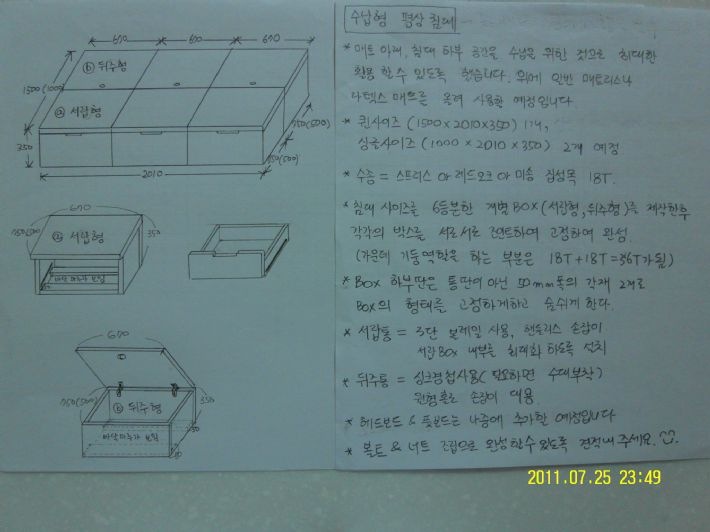 670 690 670
ⓑ 뒤주형
1500(1000)
ⓐ 서랍형
750(500)
350
750(500)
2010
670
750(500)
ⓐ 서랍형
350
바닥 마루가 보임
670
750(500)
ⓑ 뒤주형
350
바닥 마루가 보임
50
수납형 평상 침대
* 매트 아래, 침대 하부 공간을 수납을 위한 것으로 최대한
활용 할 수 있도록 했습니다. 위에 일반 매트리스나
라텍스 매트를 올려 사용할 예정입니다.
* 퀸사이즈 (1500 x 2010 x 350) 1개,
싱글사이즈 (1000 x 2010 x 350) 2개 예정
* 수종 = 스프러스 or 레드오크 or 미송 집성목 18T.
* 침대 사이즈를 6등분한 개별 BOX (서랍형, 뒤주형)를 제작한후
각각의 박스를 서로서로 볼트하여 고정하여 완성.
(가운데 기둥역학을 하는 부분은 18T + 18T = 36T가 됨)
* BOX 하부판은 통판이 아닌 50mm폭의 각재 2개로
BOX의 형태를 고정하게하고 숨쉬게 한다.
* 서랍통 = 3단 볼레일 사용, 핸들리스 손잡이
서랍 BOX 내부를 최대화 하도록 설치
* 뒤주통 = 싱크경첩사용 (필요하면 수대부착)
원형홀로 손잡이 대용.
* 헤드보드 & 풋보드는 나중에 추가할 예정입니다
* 볼트 & 너트 조립으로 완성할수 있도록 견적내 주세요.
2011.07.25 23:49